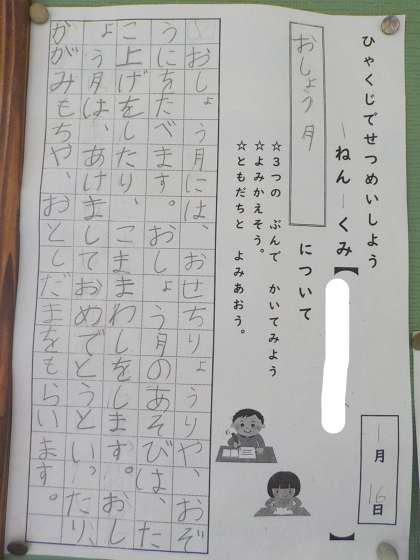 ひゃくじでせつめいしよう
一ねん一くみ【 】
おしょう月 について
☆3つの ぶんで かいてみよう
☆よみかえそう。
☆ともだちと よみあおう。
1月16日
おしょう月には、おせちりょうりや、おぞ
うにをたべます。おしょう月のあそびは、た
こ上げをしたり、こままわしをします。おし
ょう月は、あけましておめでとうといったり、
かがみもちや、おとしだまをもらいます。